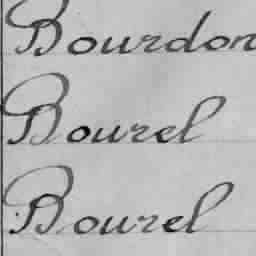 Bourdon
Bourel
Bourel